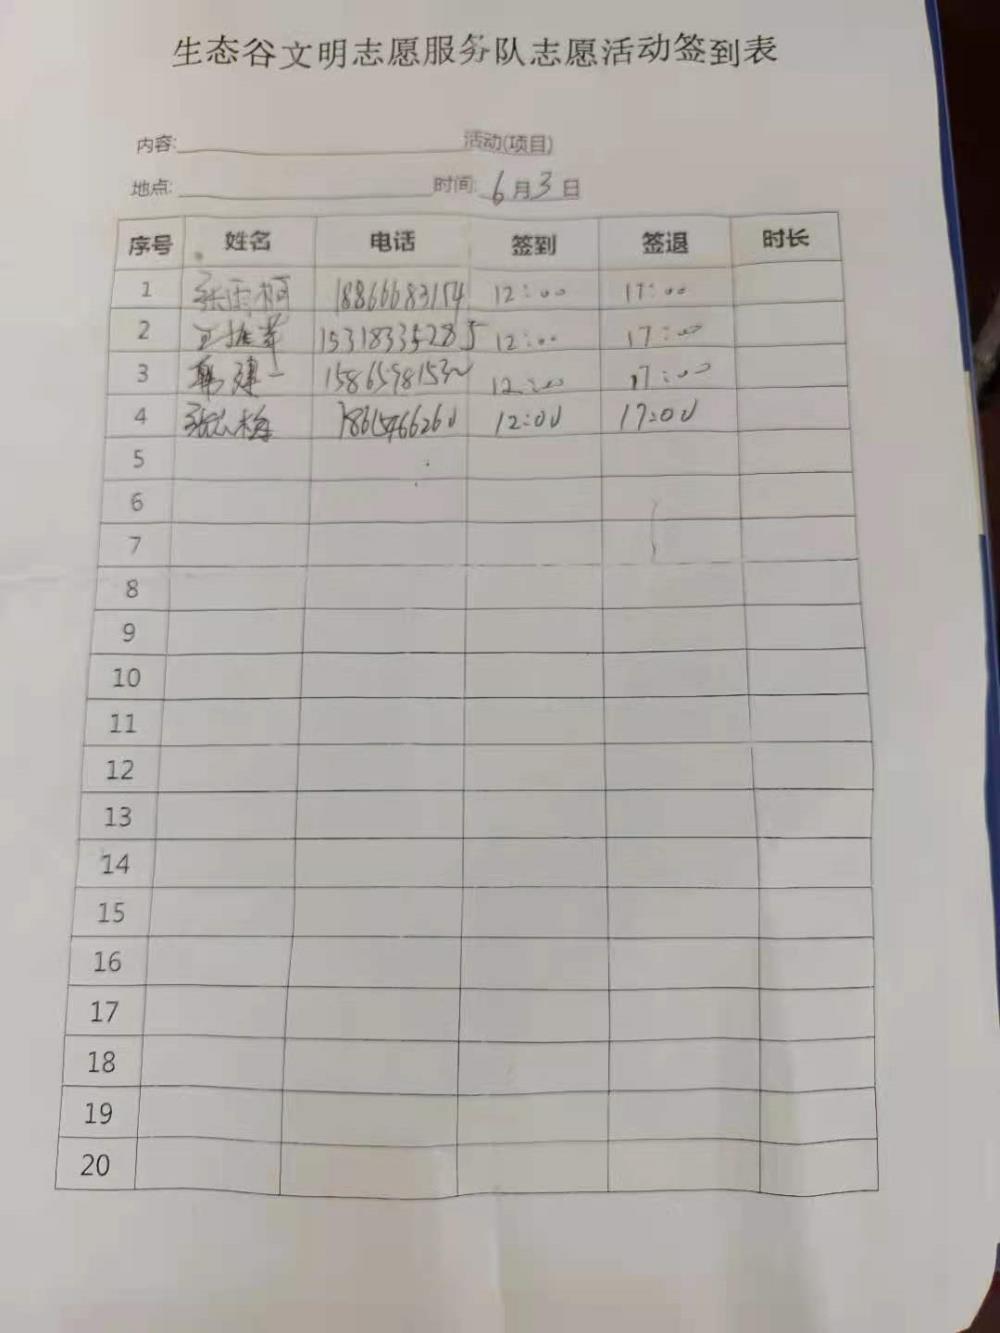 生态谷文明志愿服务队志愿活动签到表
内容: 活动(项目)
地点: 时间: 6月3日
序号 姓名 电话 签到 签退 时长
1 张雨柯 18866683154 12:00 17:00
2 15318335285 12:00 17:00
3 韩建一 12:00 17:00
4 12:00 17:00
5
6
7
8
9
10
11
12
13
14
15
16
17
18
19
20